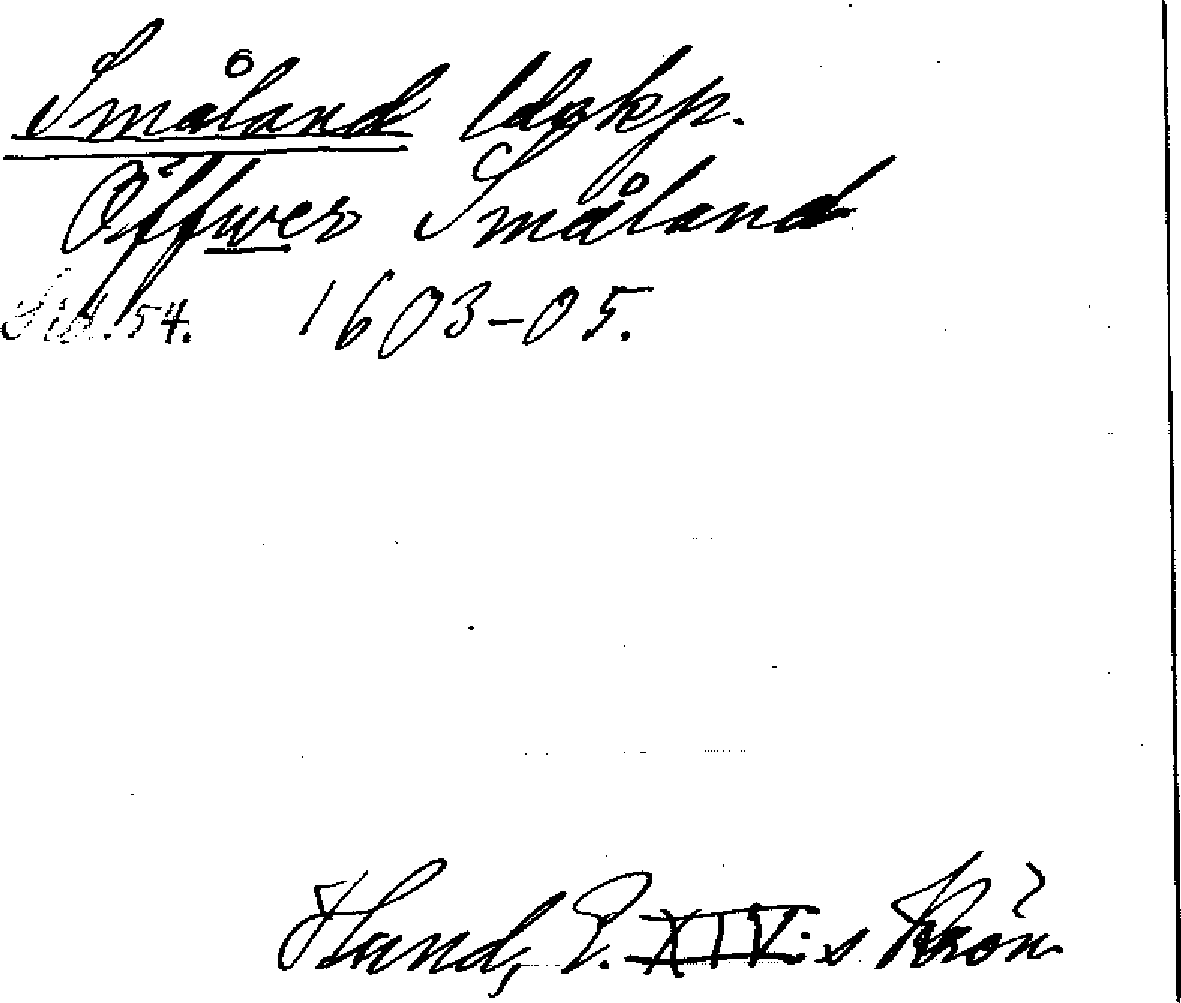 Småland ldskp.
Öffwer Småland
Sid. 54. 1603-05.
Hand, E. XIV:s krön.